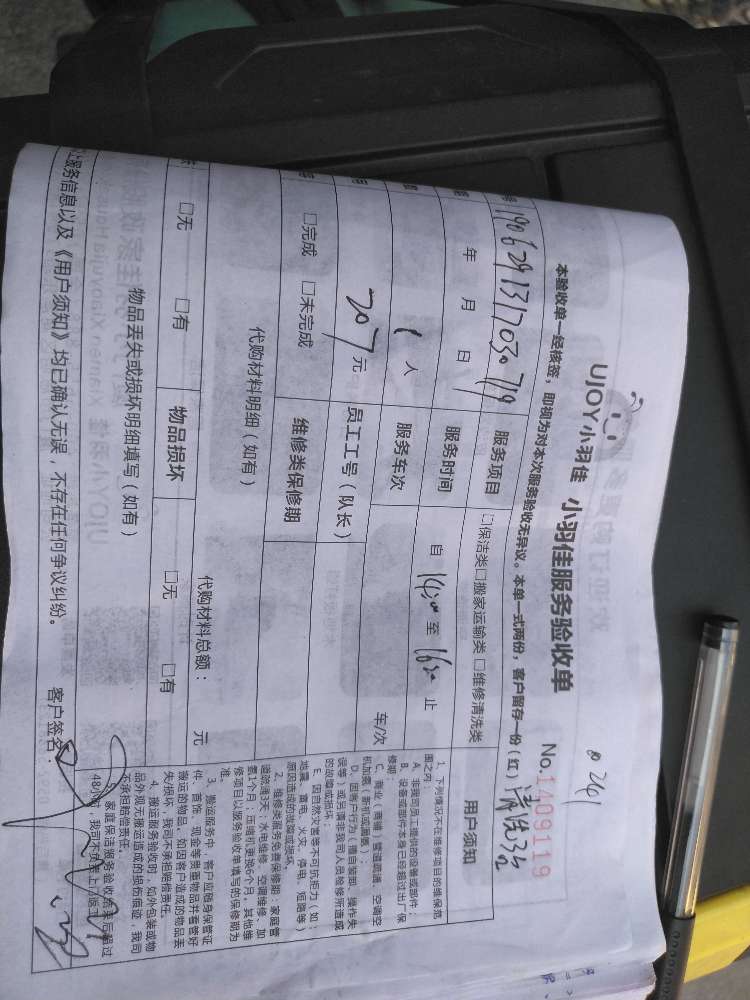 UJOY小羽佳 小羽佳服务验收单
No.1409119
本验收单一经核签，即视为对本次服务验收无异议。本单一式两份，客户留存一份（红）
清洗3台
190629131703071
服务项目
□保洁类□搬家运输类 □维修清洗类
年 月 日
服务时间
自 14:30 至 16:30 止
1 人
服务车次
车/次
207 元
员工工号（队长）
□完成 □未完成
维修类保修期
代购材料明细（如有）
代购材料总额： 元
□无 □有
物品损坏
□无 □有
物品丢失或损坏明细填写（如有）
上服务信息以及《用户须知》均已确认无误，不存在任何争议纠纷。
客户签名：
用户须知
1、下列情况不在维修项目的维保范
围之内：
A、非我司员工提供的设备或部件；
B、设备或部件本身已经超过出厂保
修期；
C、商业（商铺）管道疏通、空调空
机加氨、新机或漏氨；
D、因客户行为（擅自装卸、操作失
误等）或另请非我司人员检修所造成
的故障或损坏；
E、因自然灾害等不可抗拒力（如：
地震、雷电、火灾、停电、短路等）
原因造成的故障或损坏。
2、维修类服务免费保修期：家庭管
道疏通3天；水电维修、空调维修、加
氨1个月；压缩机更换6个月。其他维
修项目以服务验收单填写的保修期为
准。
3、搬运服务中，客户应随身保管证
件、首饰、现金等贵重物品并看管好
搬运的物品，如因客户造成的物品丢
失/损坏，我司不承担赔偿责任。
4、搬运服务验收时，如外包装或物
品外观无搬运造成的损伤痕迹，我司
不承担赔偿责任。
家庭保洁服务验收结束后超过
48小时，我司不负责上门返工